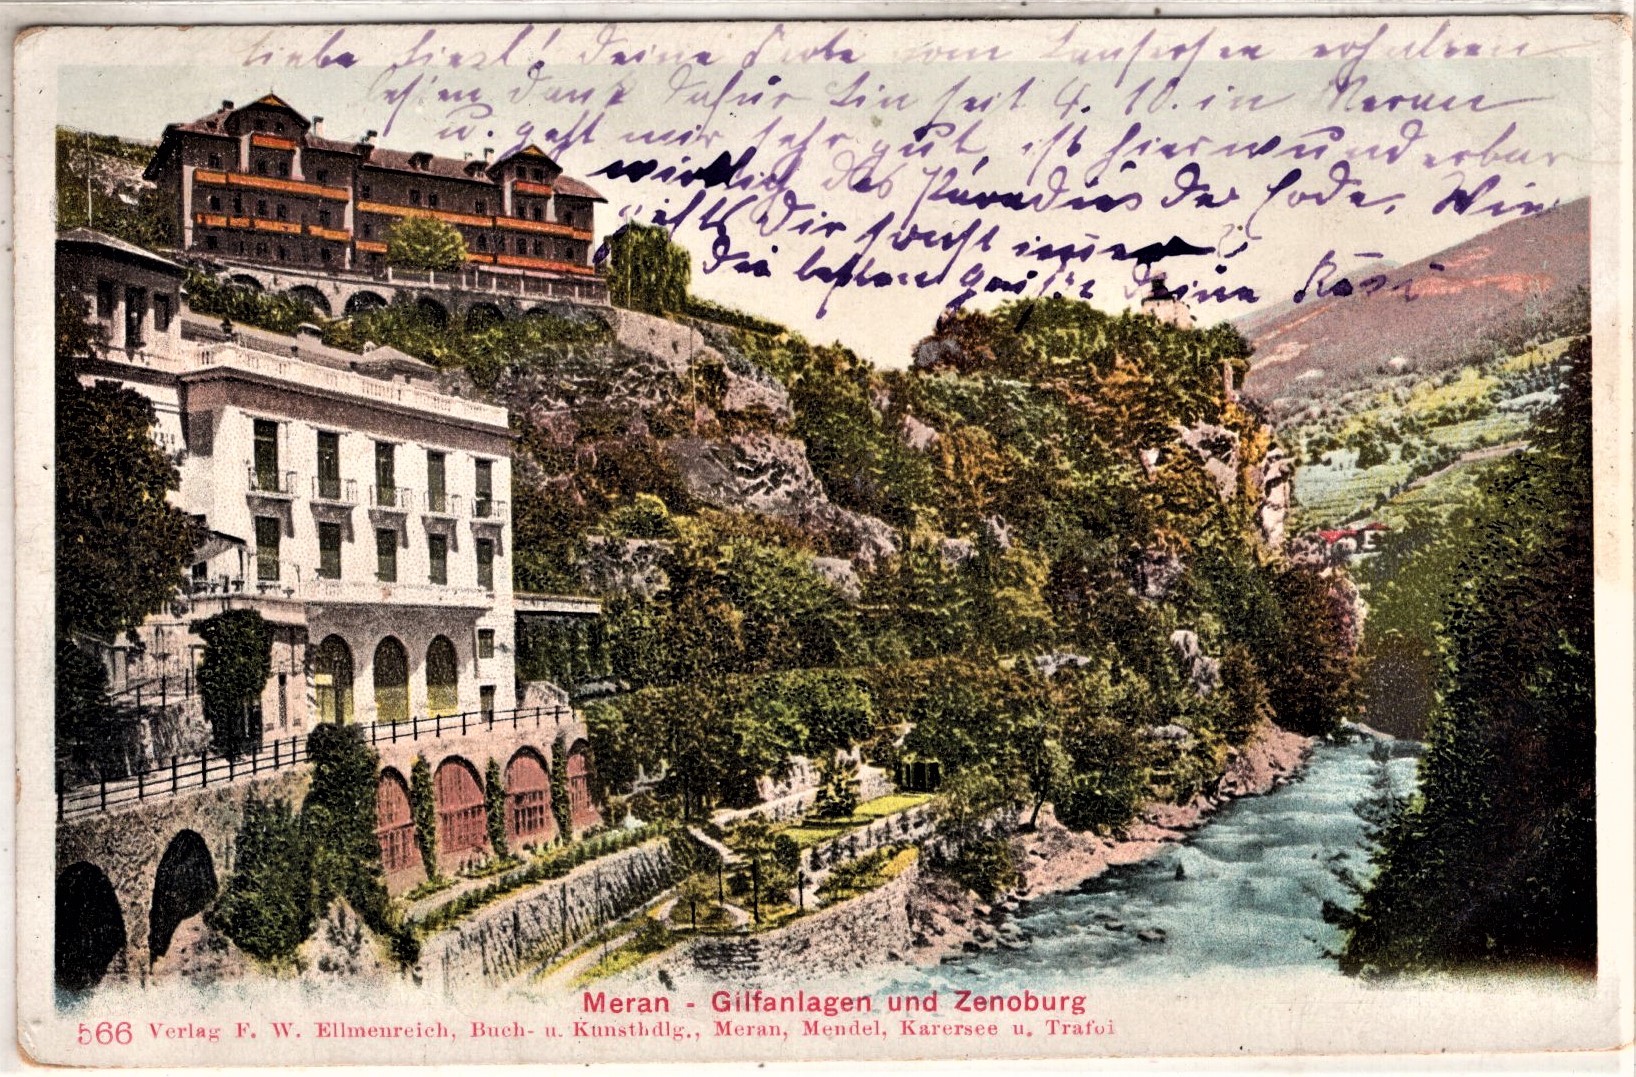 liebe Liesl! Deine Karte vom erhalten
schön dank dafür bin seit 4. 10. in Meran
u. geht mir sehr gut, ist hier wunderbar
wirklich das Paradies der Erde. Wie
gehts Dir sonst immer?
Die besten Grüße Deine Resi
Meran - Gilfanlagen und Zenoburg
566 Verlag F. W. Ellmenreich, Buch- u. Kunsthdlg., Meran, Mendel, Karersee u. Trafoi